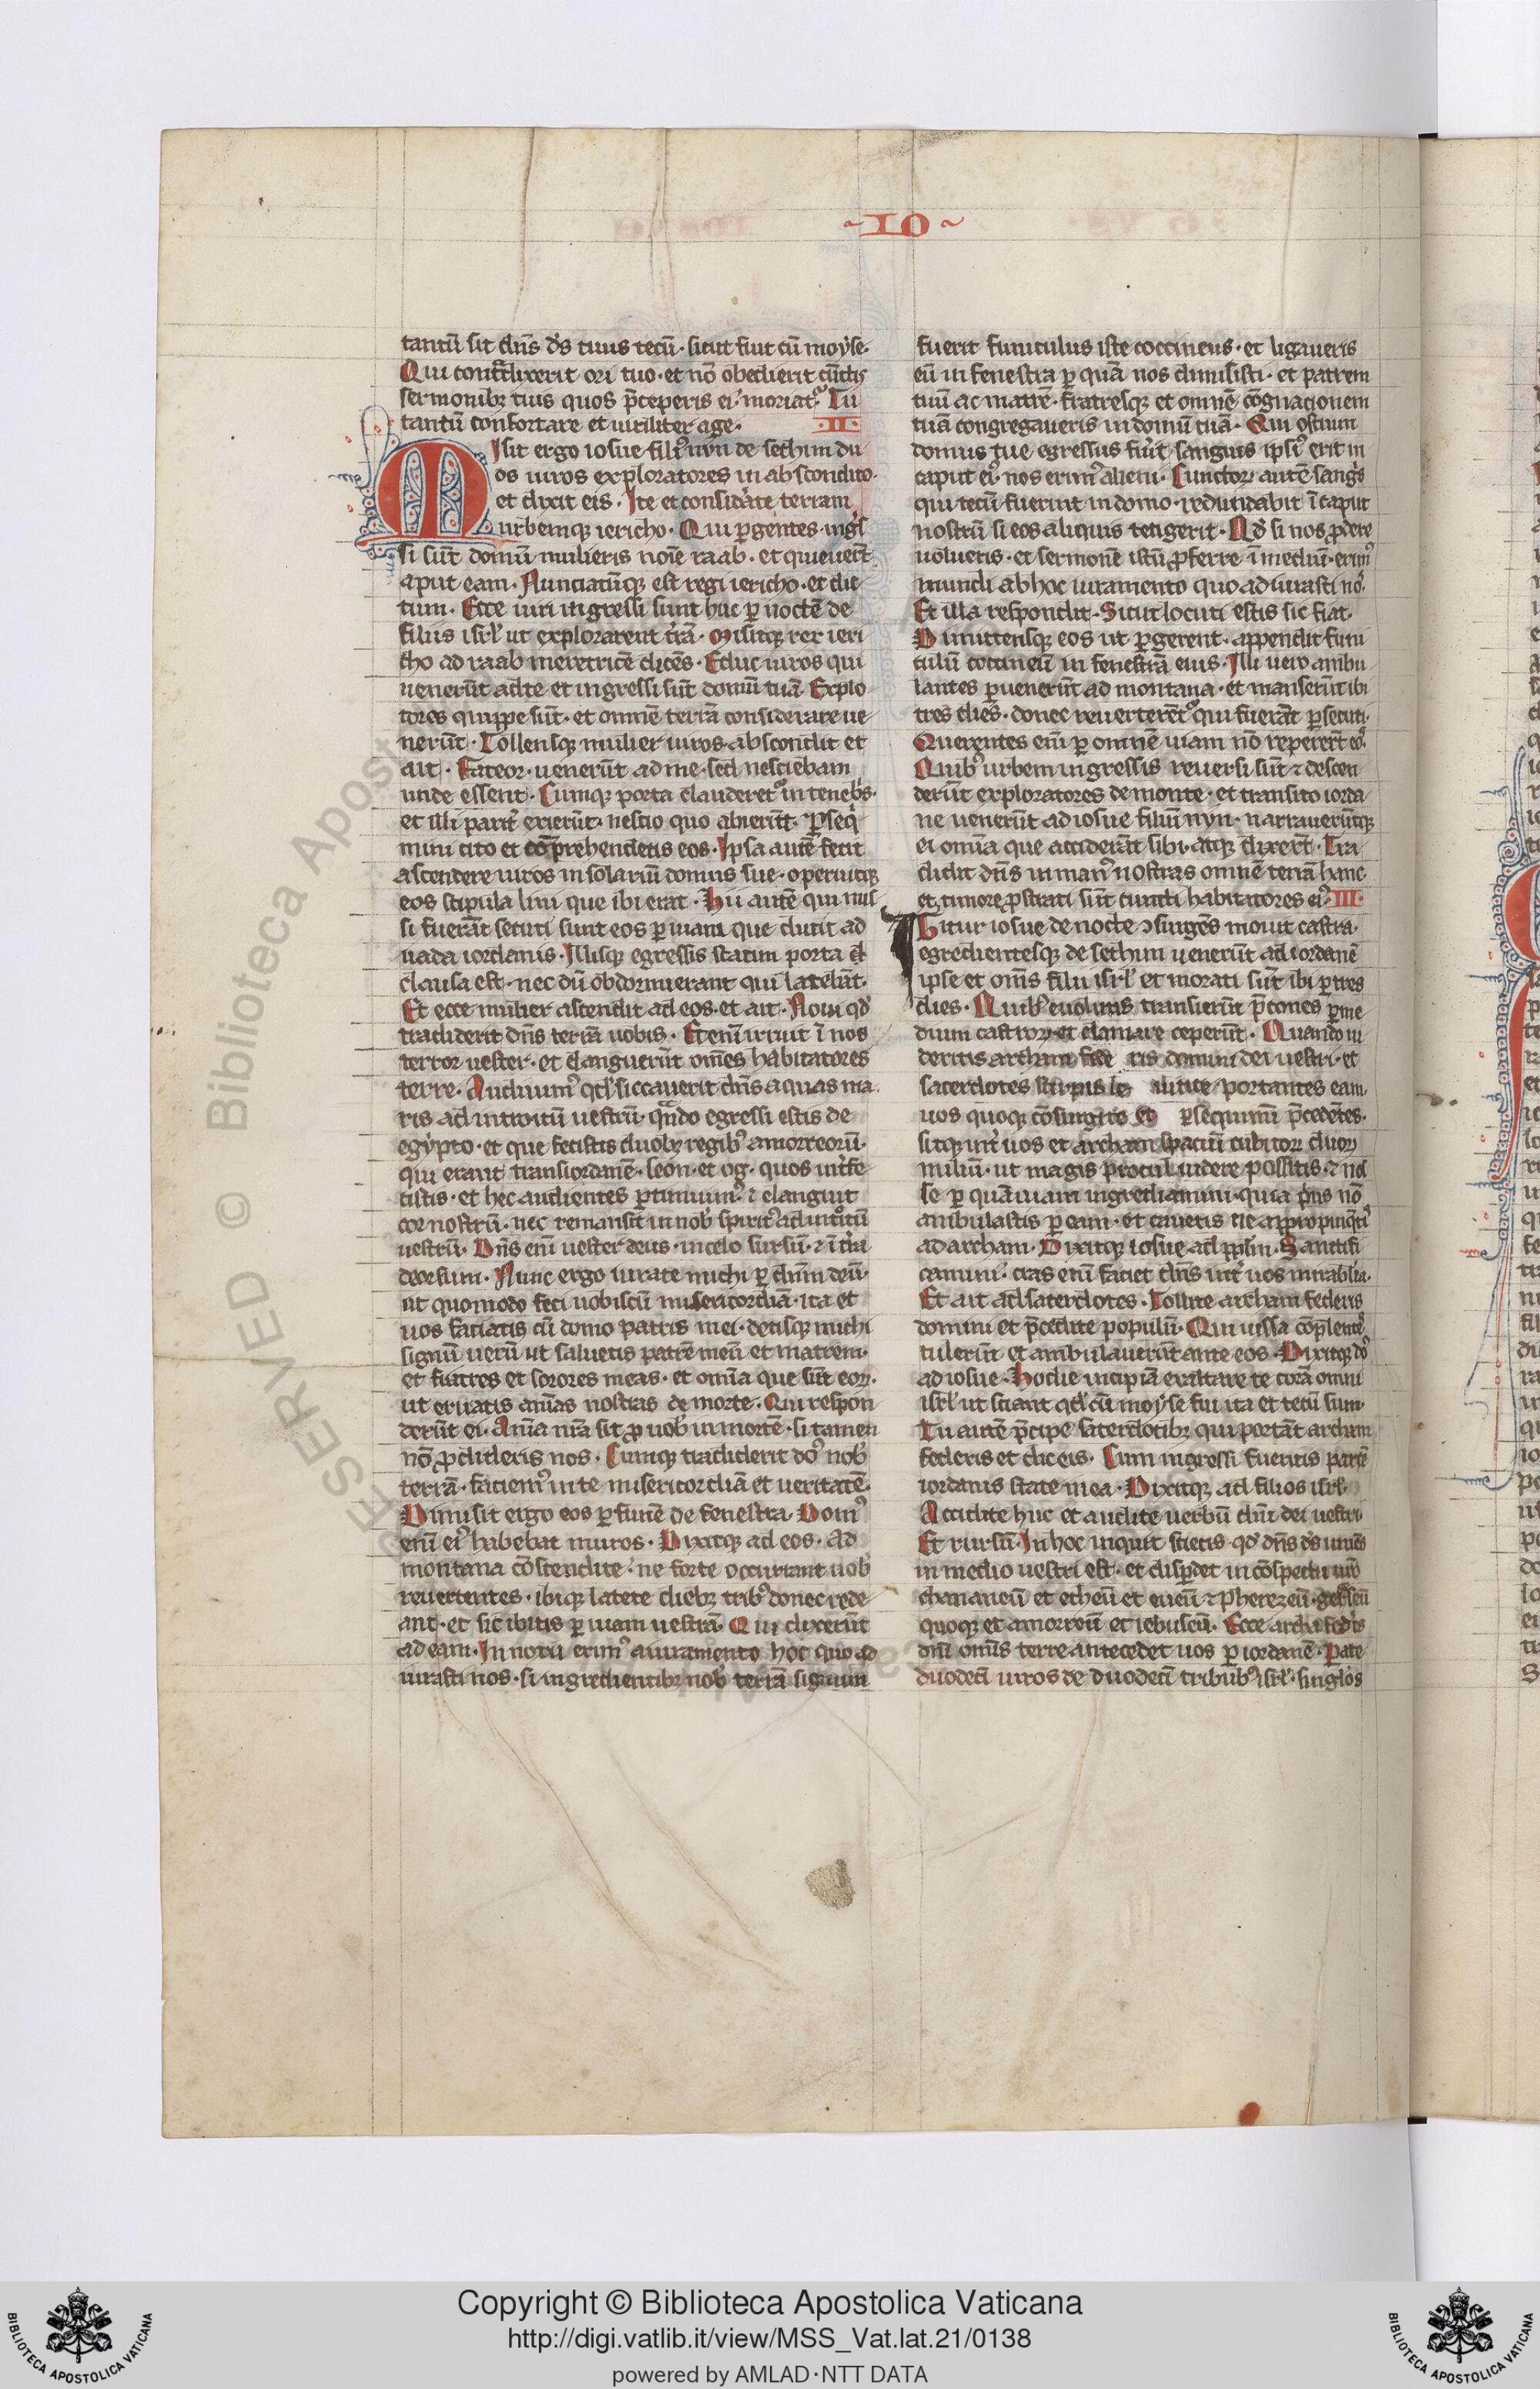 ~IO~
tantū sit dn̄s ds̄ tuus tecū· sicut fuit cū moẏse·
Qui contᵃdixerit ori tuo· et nō obedierit cūctis
sermonibꝫ tuis quos p̄ceperis ei· moriatᷣ Tu
tantū confortare et uiriliter age· ·II·
Misit ergo iosue filiꝰ nyn de sethim du
os uiros exploratores in abscondito·
et dixit eis· Ite et considate terram
urbemqꝫ iericho· Qui ꝑgentes ingͥs
si sūt domū mulieris noīe raab· et quieuert̄
aput eam· Nunciatūqꝫ est regi iericho· et dic
tum· Ecce uiri ingressi sunt huc ꝑ noctē de
filiis isrl̄ ut explorarent tr̄ā· Misitqꝫ rex ieri
cho ad raab meretricē dicēs· Educ uiros qui
uenerūt ad te et ingressi sūt domū tuā Explo
tores quippe sūt· et omnē terrā considerare ue
nerūt· Tollensqꝫ mulier uiros abscondit et
ait· Fateor· uenerūt ad me· sed nesciebam
unde essent· Cumqꝫ porta clauderetᷣ in tenebs·
et illi parit̄ exierūt· nescio quo abierūt· ꝑseq̄
mini cito et cōprehendetis eos· Ipsa autē fecit
ascendere uiros in solariū domus sue· operuitqꝫ
eos stipula lini que ibi erat· Hii autē qui mis
si fuerāt secuti sunt eos ꝑ uiam que ducit ad
uada iordanis· Illisqꝫ egressis statim porta
clausa est· nec dū obdormierant qui latebāt·
Et ecce mulier ascendit ad eos· et ait· Noui qd̄
tradiderit dn̄s terrā uobis· Etenī irruit ī nos
terror uester· et elanguerūt om̄es habitatores
terre· Audiuimꝰ qd̄ siccauerit dn̄s aquas ma
ris ad introitū uestrū· qn̄do egressi estis de
egẏpto· et que fecistis duobꝫ regibꝰ amorreorū·
qui erant trans iordanē· seon· et og· quos int̄fe
cistis· et hec audientes ꝑtimuimꝰ ⁊ elanguit
cor nostrū· nec remansit in nob̄ spiritꝰ ad intᵒitū
uestrū· Dn̄s enī uester deus· in celo sursū· ⁊ ī tr̄a
deorsum· Nunc ergo iurate michi ꝑ dn̄m deū·
ut quomodo feci uobiscū misericordiā· ita et
uos faciatis cū domo patris mei· detisqꝫ michi
signū uerū ut saluetis patrē meū et matrem·
et fratres et sorores meas· et om̄ia que sūt eoꝝ·
ut eruatis aīas nostras de morte· Qui respon
derūt ei· Anīa nr̄a sit ꝓ uob̄ in mortē· si tamen
nō ꝓdideris nos· Cumqꝫ tradiderit dōs nob̄
terrā· faciemꝰ in te misericordiā et ueritatē·
Dimisit ergo eos ꝑ funē de fenestra· Domꝰ
enī eiꝰ habebat muros· Dixitqꝫ ad eos· Ad
montana cōscendite· ne forte occurrant uob̄
reuertentes· ibiqꝫ latete diebꝫ tribꝰ donec rede
ant· et sic ibitis ꝑ uiam uestrā· Qui dixerūt
ad eam· In noxii erimꝰ a iuramento hoc quo ad
iurasti nos· si ingredientibꝫ nob̄ terrā signum
fuerit funiculus iste coccineus· et ligaueris
eū in fenestra ꝑ quā nos dimisisti· et patrem
tuū ac matrē· fratresqꝫ et omnē cōgnacionem
tuā congregaueris in domū tuā· Qui ostium
domus tue egressus fuīt· sanguis ipsiꝰ erit in
caput eiꝰ· nos erimꝰ alieni· Cunctoꝝ autē sangͥs
qui tecū fuerint in domo· redundabit ī caput
nostrū si eos aliquis tetigerit· Qd̄ si nos ꝓdere
uolueris· et sermonē istū ꝓferre ī mediū· erimꝰ
mundi ab hoc iuramento quo adiurasti nō·
Et illa respondit· Sicut locuti estis sic fiat·
Dimittensqꝫ eos ut ꝑgerent· appendit funi
culū coccineū in fenestra eius· Illi uero ambu
lantes ꝑuenerūt ad montana· et manserūt ibi
tres dies· donec reuerterētᷣ qui fuerāt ꝑsecuti·
Querentes enī ꝑ omnē uiam nō repererūt eōs·
Quibꝰ urbem ingressis reuersi sūt ⁊ descen
derūt exploratores de monte· et transito iorda
ne uenerūt ad iosue filiū nyn· narrauerūtqꝫ
ei om̄ia que acciderāt sibi· atqꝫ dixert̄· Tra
didit dn̄s in manꝰ nostras omnē terrā hanc
et timore ꝓstrati sūt cuncti habitatores eiꝰ ·III·
Igitur iosue de nocte ↄsurgēs mouit castra·
egredientesqꝫ de sethim uenerūt ad iordanē
ipse et om̄s filii isrl̄ et morati sūt ibi ꝑ tres
dies· Quibꝰ euolutis transierūt p̄cones ꝑ me
dium castroꝝ et clamare ceperūt· Quando ui
deritis archam fede ris domini dei uestri· et
sacerdotes stirpis le uitice portantes eam
uos quoqꝫ cōsurgite et ꝑsequimī p̄cedētes·
sitqꝫ int̄ uos et archam spaciū cubitoꝝ duoꝝ
miliū· ut magis procul uidere possitis· ⁊ nos
se ꝑ quā uiam ingrediamini· quia pͥus nō
ambulastis ꝑ eam· et cauetis ne appropinq̄tis
ad archam· Dixitqꝫ iosue ad ppl̄m· Sanctifi
camini· cras enī faciet dn̄s int̄ uos mirabilia·
Et ait ad sacerdotes· Tollite archam federis
domini et p̄cedite populū· Qui iussa cōplentes
tulerūt et ambulauerūt ante eos· Dixitqꝫ dōs
ad iosue· Hodie incipiā exaltare te corā omni
isrl̄ ut sciant qd̄ cū moẏse fui ita et tecū sum·
Tu autē p̄cipe sacerdotibꝫ qui portāt archam
federis et dic eis· Cum ingressi fueritis partē
iordanis state in ea· Dixitqꝫ ad filios isrl̄·
Accedite huc et audite uerbū dn̄i dei uestri
Et rursū· In hoc inquit scietis qd̄ dn̄s ds̄ uiuēs
in medio uestri est· et dispdet in cōspectu uro
chananeū et etheū et eueū ⁊ pherezeū· gergeseū
quoqꝫ et amorreū et iebuseū· Ecce archa fedis
dn̄i om̄s terre antecedet uos ꝑ iordanē· Pate
duodecī uiros de duodecī tribubꝰ isrl̄· singlos
Copyright © Biblioteca Apostolica Vaticana
http://digi.vatlib.it/view/MSS_Vat.lat.21/0138
powered by AMLAD·NTT DATA
BIBLIOTECA APOSTOLICA VATICANA
BIBLIOTECA APOSTOLICA VATICANA